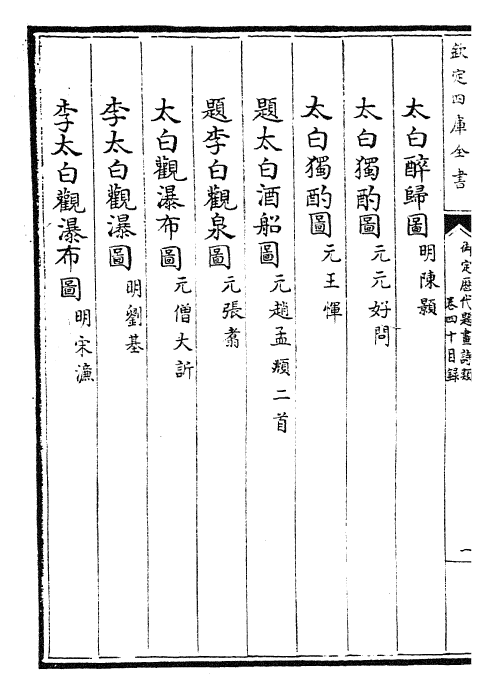 欽定四庫全書
御定歴代題畫詩類
卷四十目録
一
太白醉歸圖 明陳顥
太白獨酌圖 元元好問
太白獨酌圖 元王惲
題太白酒船圖 元趙孟頫二首
題李白觀泉圖 元張翥
太白觀瀑布圖 元僧大訢
李太白觀瀑圖 明劉基
李太白觀瀑布圖 明宋濂